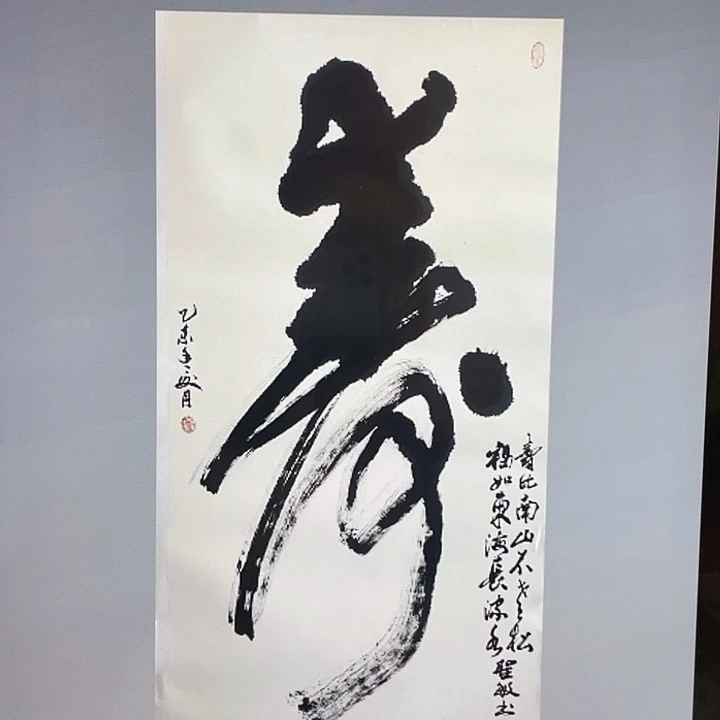 寿
壽比南山不老松
福如東海長流水 聖敏书
乙未年 月